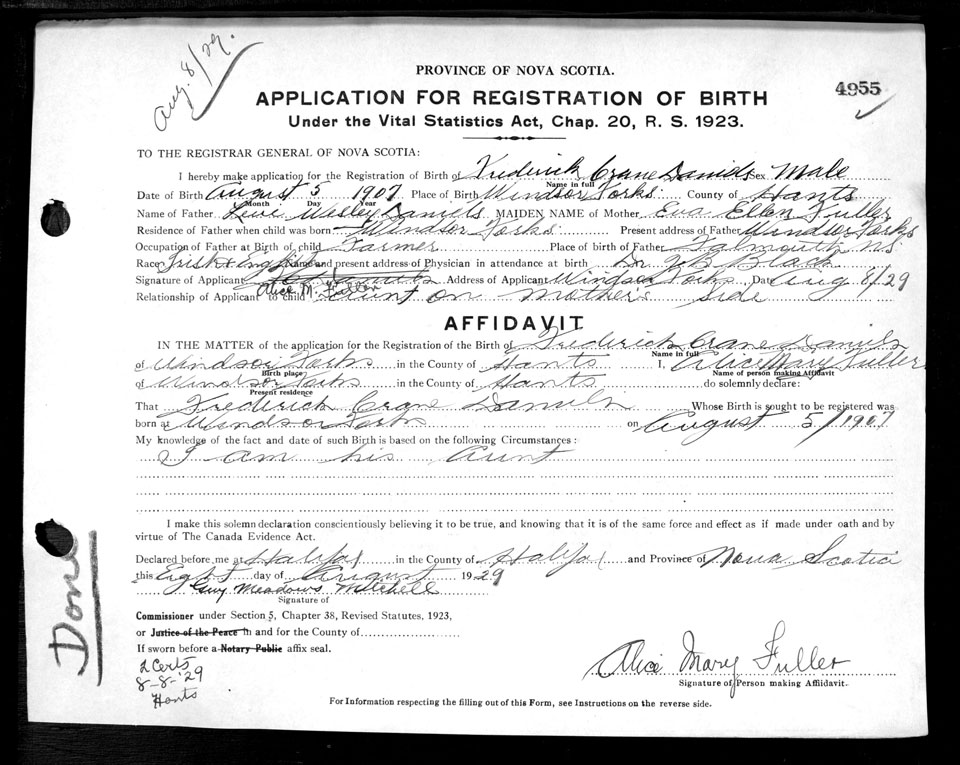 Aug. 8/29.
PROVINCE OF NOVA SCOTIA.
4955
APPLICATION FOR REGISTRATION OF BIRTH
Under the Vital Statistics Act, Chap. 20, R. S. 1923.
TO THE REGISTRAR GENERAL OF NOVA SCOTIA:
I hereby make application for the Registration of Birth of Frederick Crane Daniels Sex Male
Name in full
Date of Birth August 5 1907 Place of Birth Windsor Forks County of Hants
Month Day Year
Name of Father Wesley Daniels MAIDEN NAME of Mother, Eva Ellen Fuller
Residence of Father when child was born Windsor Forks Present address of Father Windsor Forks
Occupation of Father at Birth of child Farmer Place of birth of Father Falmouth N.S.
Race Irish & English Name and present address of Physician in attendance at birth Dr J B Black
Signature of Applicant Address of Applicant Windsor Forks Date Aug 8/29
Alice M. Fuller
Relationship of Applicant to child Aunt on mother's side
AFFIDAVIT
IN THE MATTER of the application for the Registration of the Birth of Frederick Crane Daniels
Name in full
of Windsor Forks in the County of Hants I, Alice Mary Fuller
Birth place Name of person making Affidavit
of Windsor Forks in the County of Hants do solemnly declare:
Present residence
That Frederick Crane Daniels Whose Birth is sought to be registered was
born at Windsor Forks on August 5/1907
My knowledge of the fact and date of such Birth is based on the following Circumstances:
I am his Aunt
I make this solemn declaration conscientiously believing it to be true, and knowing that it is of the same force and effect as if made under oath and by
virtue of The Canada Evidence Act.
Declared before me at Halifax in the County of Halifax and Province of Nova Scotia
this Eight day of August 1929
Guy Meadows Mitchell
Signature of
Commissioner under Section 5, Chapter 38, Revised Statutes, 1923,
or Justice of the Peace in and for the County of
If sworn before a Notary Public affix seal.
Done
2 Certs
8-8-'29
Hants
Alice Mary Fuller
Signature of Person making Affidavit.
For Information respecting the filling out of this Form, see Instructions on the reverse side.